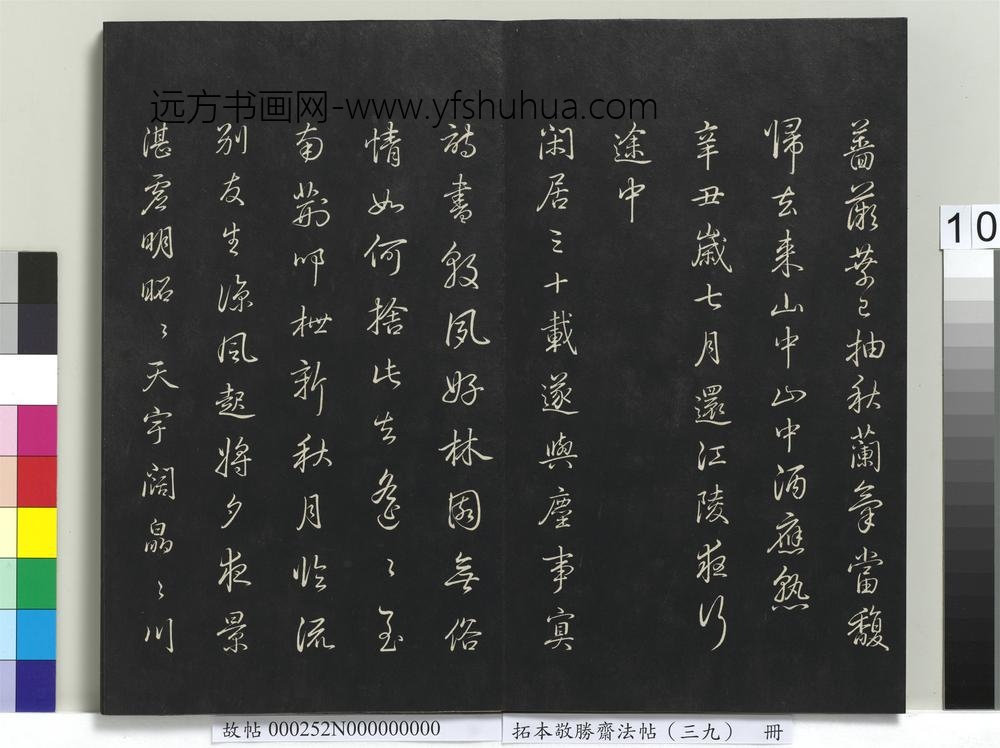 远方书画网-www.yfshuhua.com
薔薇葉已抽秋蘭氣當馥
歸去来山中山中酒應熟
辛丑歲七月還江陵夜行
途中
閑居三十載遂與塵事冥
詩書敦夙好林園無俗
情如何捨此去遙〻至
南荊叩枻新秋月臨流
别友生涼風起將夕夜景
湛虛明昭〻天宇闊皛〻川
10
故帖 000252N000000000
拓本敬勝齋法帖（三九） 冊